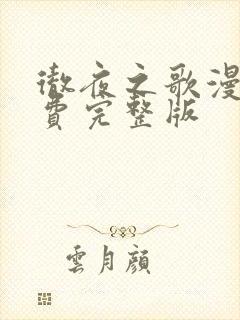 徹夜之歌漫
費完整版
雲月顔